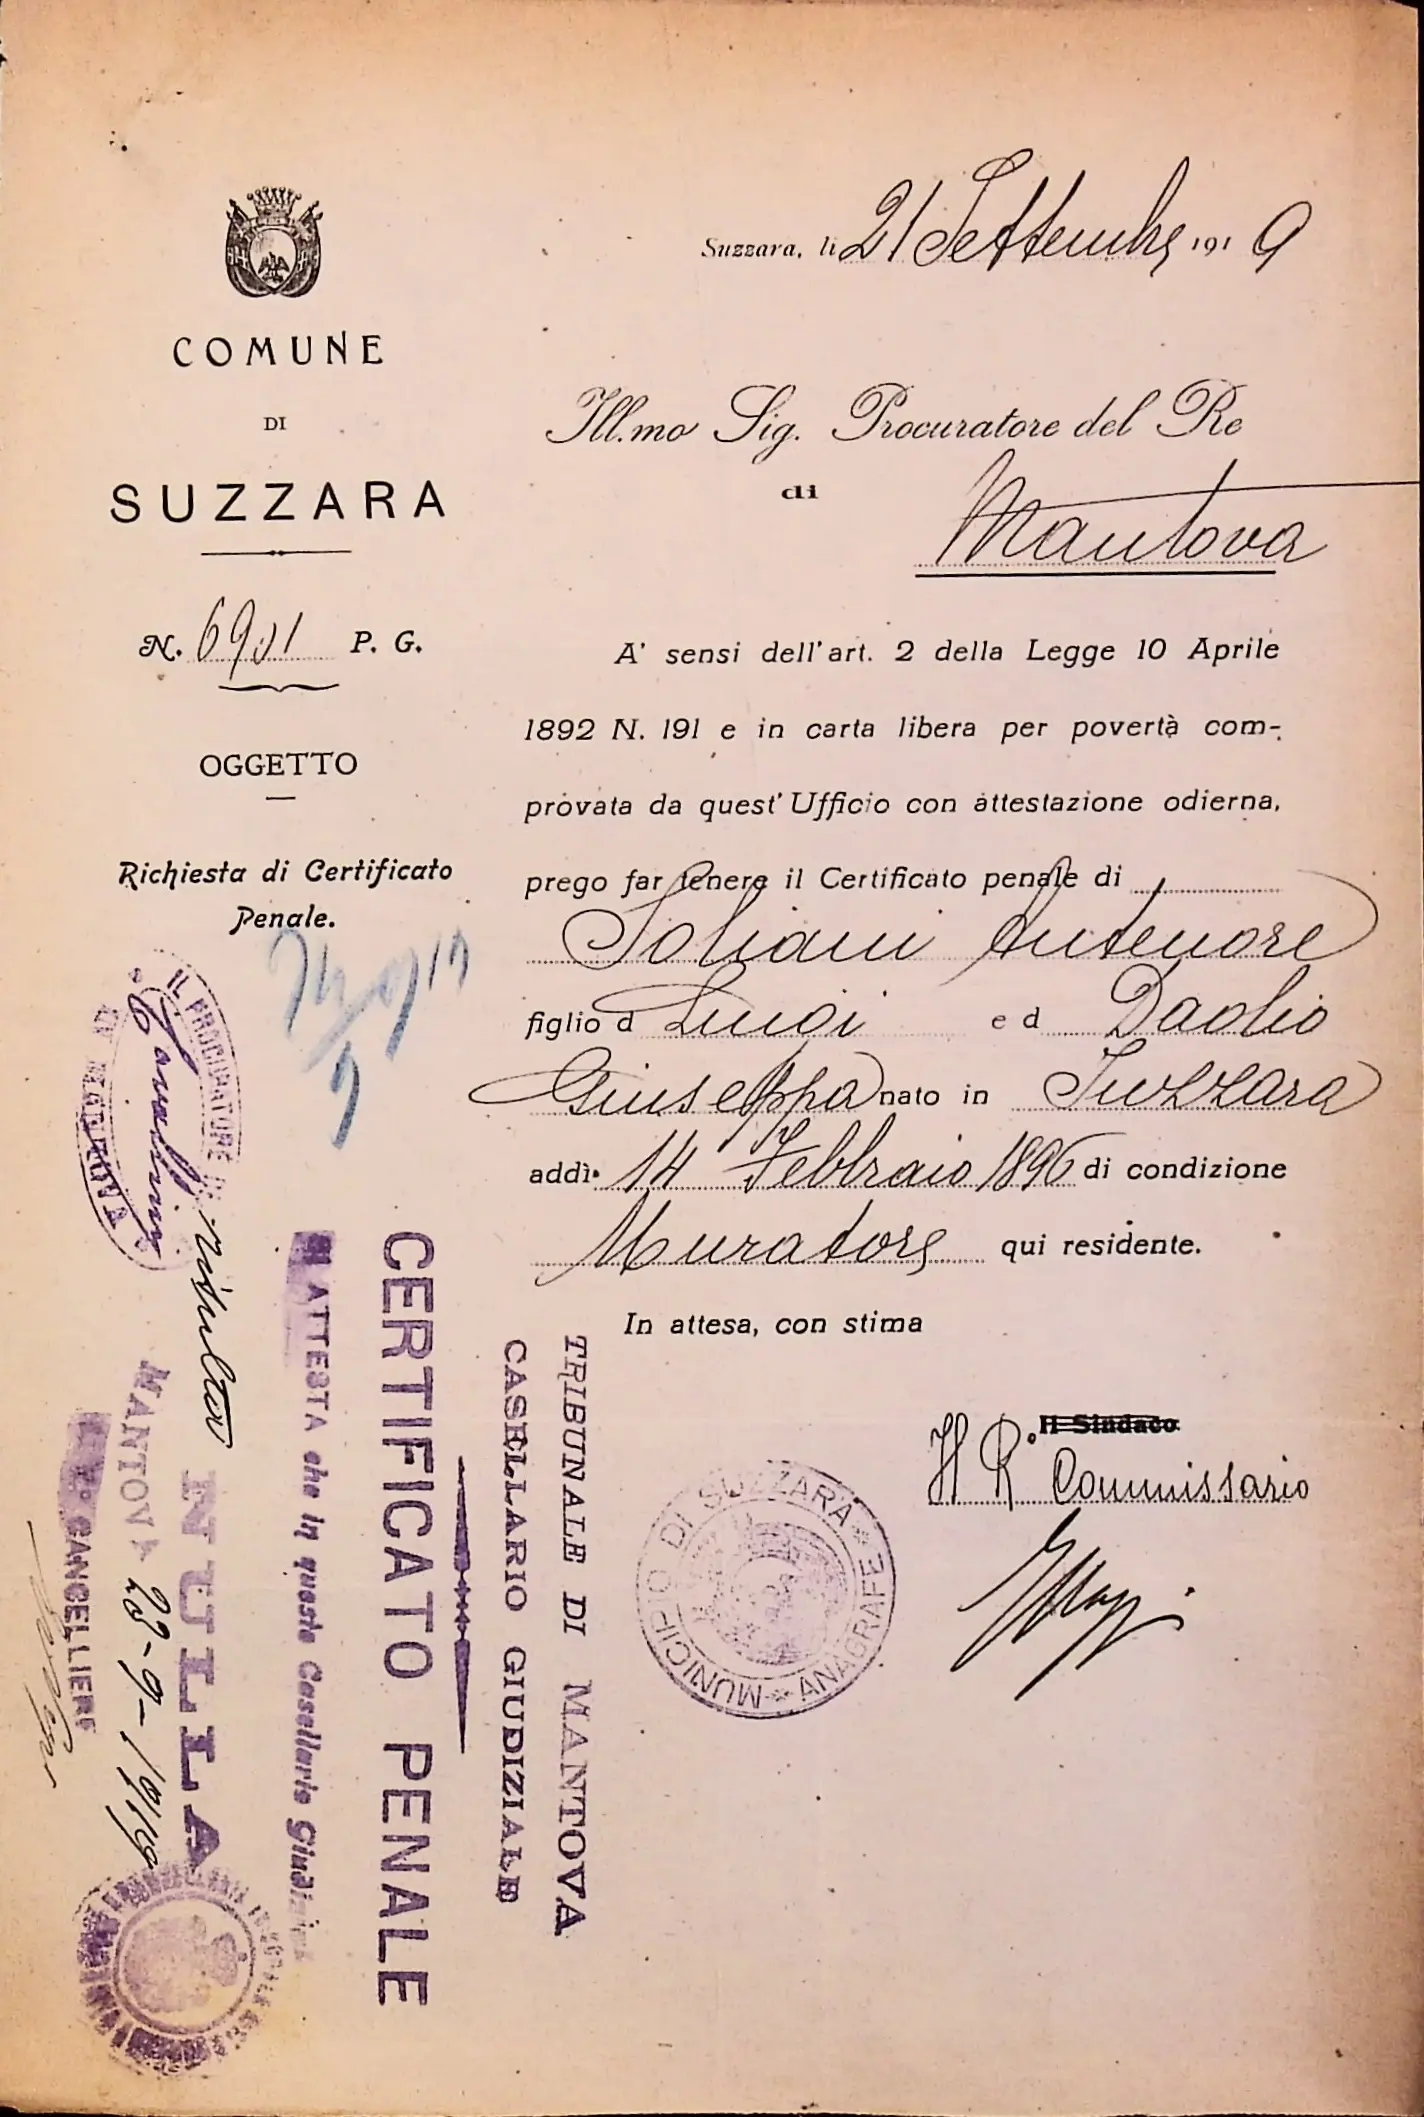 COMUNE
DI
SUZZARA
N. 6901 P. G.
OGGETTO
Richiesta di Certificato
Penale.
Suzzara, li 21 Settembre 1919
Ill.mo Sig. Procuratore del Re
di Mantova
A' sensi dell'art. 2 della Legge 10 Aprile
1892 N. 191 e in carta libera per povertà com-
provata da quest'Ufficio con attestazione odierna,
prego far tenere il Certificato penale di
Soliani Antenore
figlio d Luigi e d Daolio
Giuseppa nato in Suzzara
addì 14 Febbraio 1896 di condizione
Muratore qui residente.
In attesa, con stima
Il Sindaco
Il R. Commissario
MUNICIPIO DI SUZZARA * ANAGRAFE *
TRIBUNALE DI MANTOVA
CASELLARIO GIUDIZIALE
CERTIFICATO PENALE
SI ATTESTA che in questo Casellario Giudiziale
risulta
NULLA
MANTOVA 23-9-1919
CANCELLIERE
IL PROCURATORE
MANTOVA